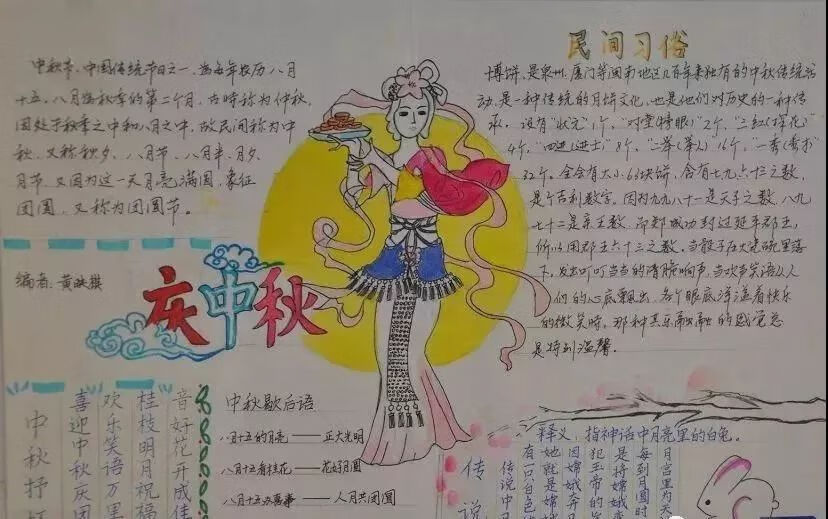 中秋节,中国传统节日之一,为每年农历八月
十五。八月为秋季的第二个月,古时称为仲秋,
因处于秋季之中和八月之中,故民间称为中
秋,又称秋夕、八月节、八月半、月夕、
月节,又因为这一天月亮满圆,象征
团圆,又称为团圆节。
编者:黄
庆中秋
民间习俗
博饼,是泉州、厦门等闽南地区几百年来独有的中秋传统活
动,是一种传统的月饼文化,也是他们对历史的一种传
承。设有"状元"1个,"对堂(榜眼)"2个,"三红(探花)
4个,"四进(进士)"8个,"二举(举人)16个,一秀(秀才)
32个。全会有大小63块饼,含有七九六十三之数,
是个吉利数字。因为九九八十一是天子之数,八九
七十二是亲王数,而郑成功封过延平郡王,
所以用郡王六十三之数。当骰子在大瓷碗里落
下,发出叮叮当当的清脆响声,当欢声笑语从人
们的心底飘出,各个眼底洋溢着快乐
的微笑时,那种其乐融融的感觉总
是特别温馨。
中秋抒
喜迎中秋庆团
欢乐笑语万里
桂枝明月祝福
音好花开成佳
中秋歇后语
八月十五的月亮——正大光明
八月十五看桂花——花好月圆
八月十五办喜事——人月共团圆
释义:指神话中月亮里的白兔。
传说
月宫里为天
每到月圆时
是将嫦娥
犯玉帝的
因嫦娥奔
她就是嫦
有一只白色
传说中